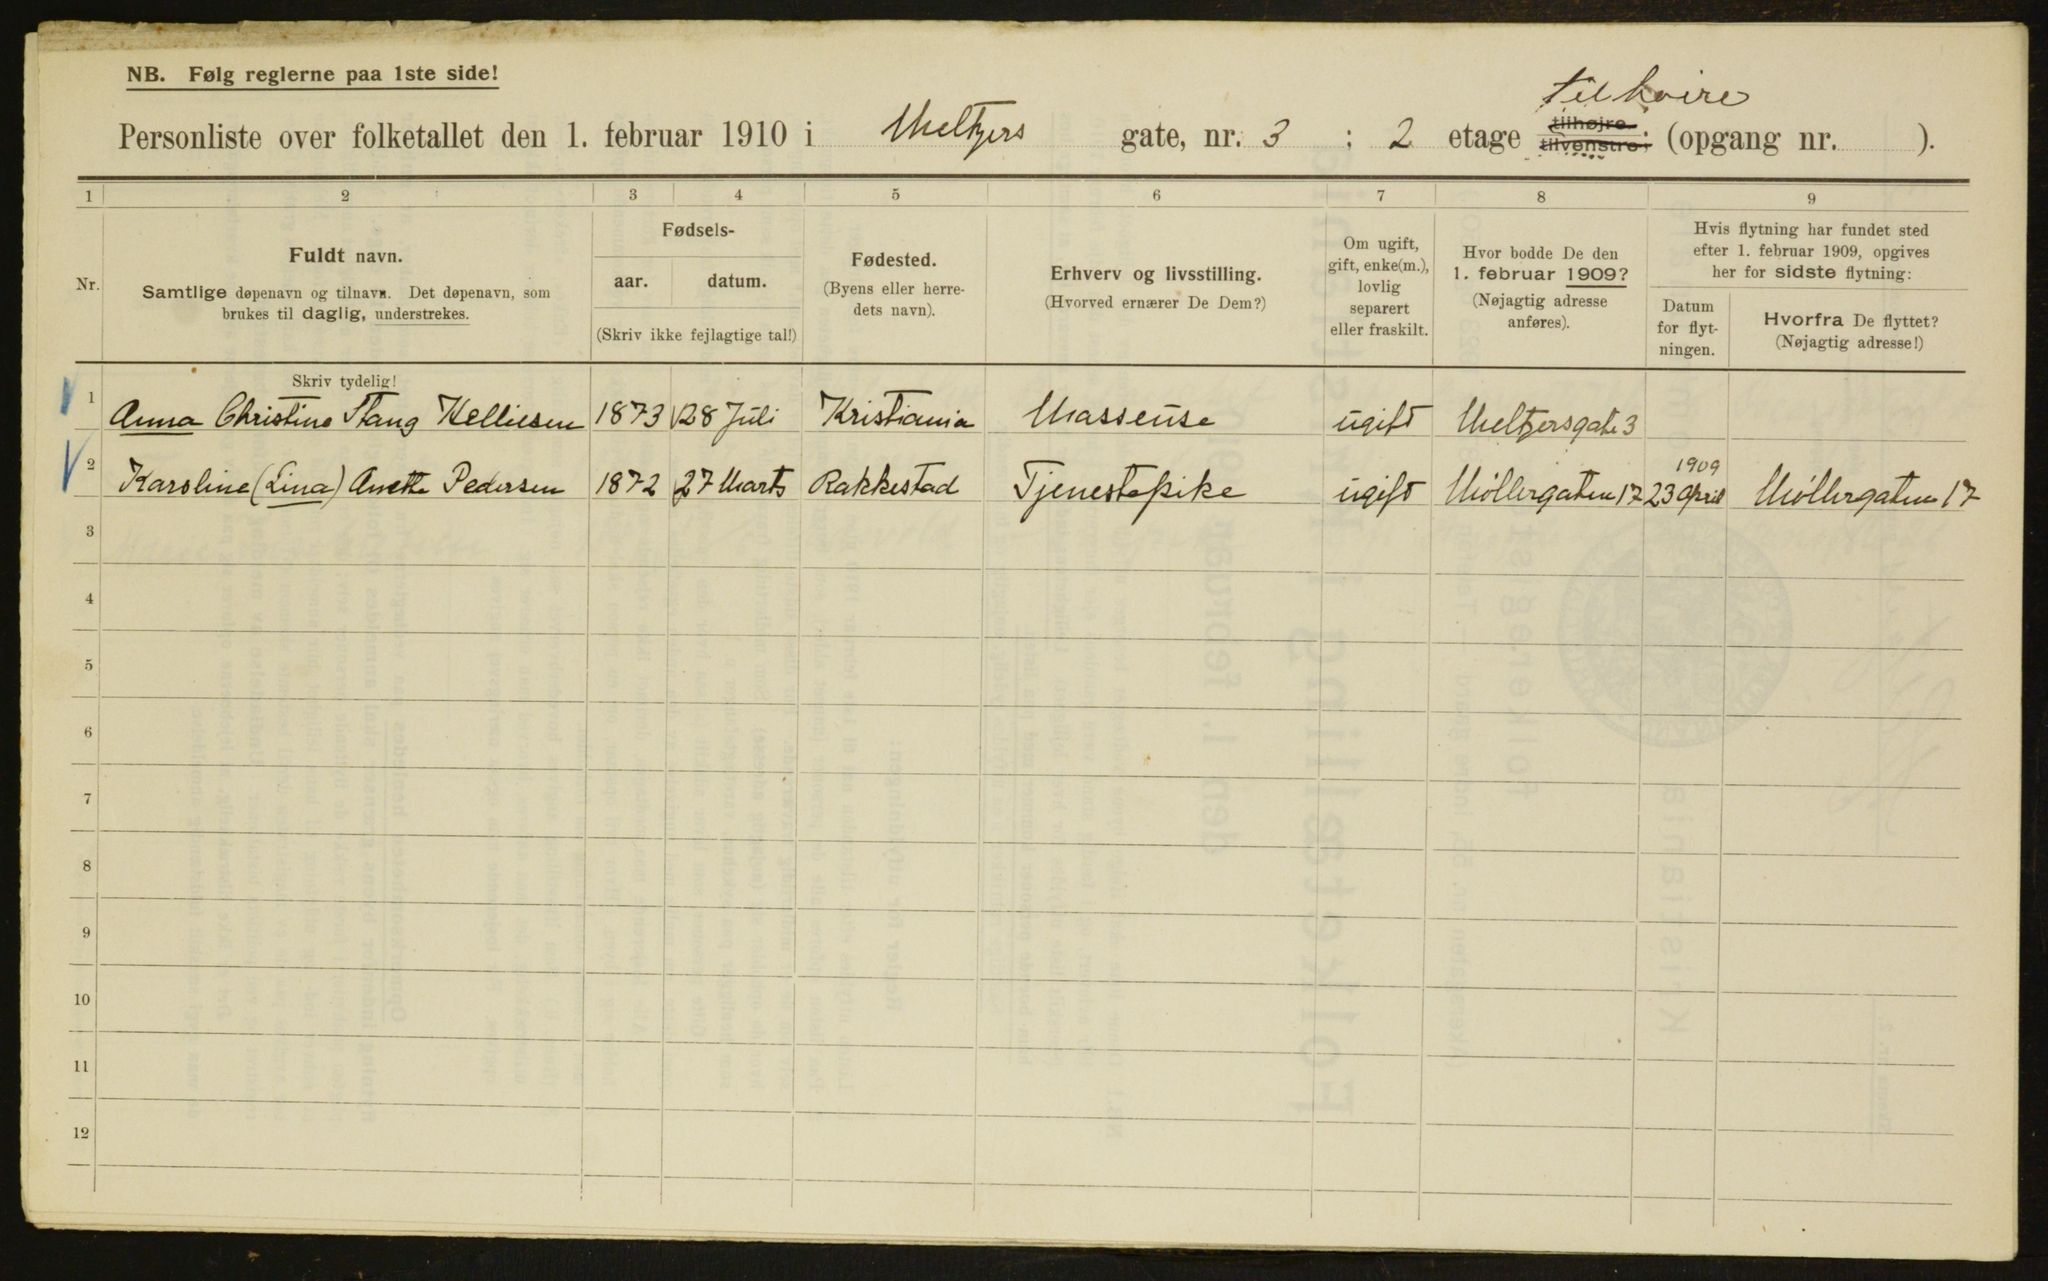 NB. Følg reglerne paa 1ste side!
til høire
Personliste over folketallet den 1. februar 1910 i Meltzers gate, nr. 3 : 2 etage tilhøjre. tilvenstre; (opgang nr. ).
1 2 3 4 5 6 7 8 9
Nr.
Fuldt navn.
Samtlige døpenavn og tilnavn. Det døpenavn, som
brukes til daglig, understrekes.
Skriv tydelig!
Fødsels-
aar. datum.
(Skriv ikke fejlagtige tal!)
Fødested.
(Byens eller herre-
dets navn).
Erhverv og livsstilling.
(Hvorved ernærer De Dem?)
Om ugift,
gift, enke(m.),
lovlig
separert
eller fraskilt.
Hvor bodde De den
1. februar 1909?
(Nøjagtig adresse
anføres).
Hvis flytning har fundet sted
efter 1. februar 1909, opgives
her for sidste flytning:
Datum
for flyt-
ningen.
Hvorfra De flyttet?
(Nøjagtig adresse!)
1 Anna Christine Stang Kelliesen 1873 28 Juli Kristiania Masseuse ugift Meltzersgate 3
2 Karoline (Lina) Anette Pedersen 1872 27 Marts Rakkestad Tjenestepike ugift Møllergaten 17 1909 23 April Møllergaten 17
3
4
5
6
7
8
9
10
11
12